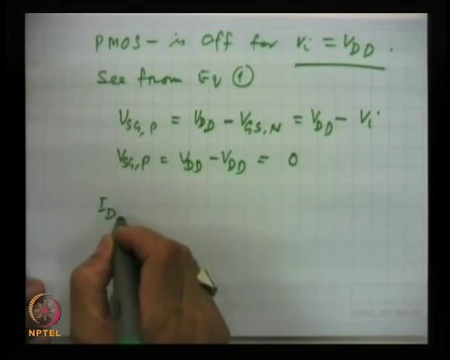 PMOS - is off for Vi = VDD.
See from Eq ①
VSG,P = VDD - VGS,N = VDD - Vi
VSG,P = VDD - VDD = 0
ID
NPTEL